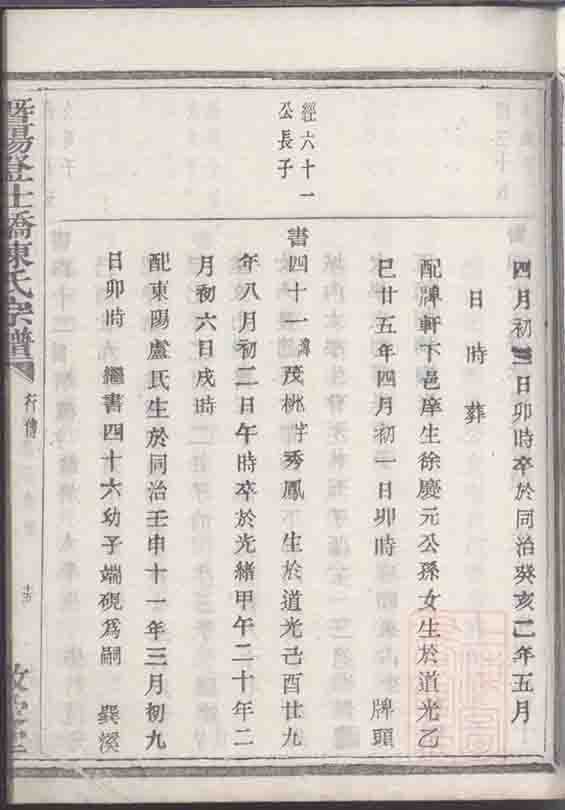 四月初三日卯時卒於同治癸亥二年五月
日時葬
配牌軒下邑庠生徐慶元公孫女生於道光乙
巳廿五年四月初一日卯時 牌頭
經六十一
公長子
書四十一諱茂桃字秀鳳生於道光己酉廿九
年八月初二日午時卒於光緒甲午二十年二
月初六日戌時
配東陽盧氏生於同治壬申十一年三月初九
日卯時繼書四十六幼子端硯爲嗣 巽溪
暨陽登仕橋陳氏宗譜
行傳